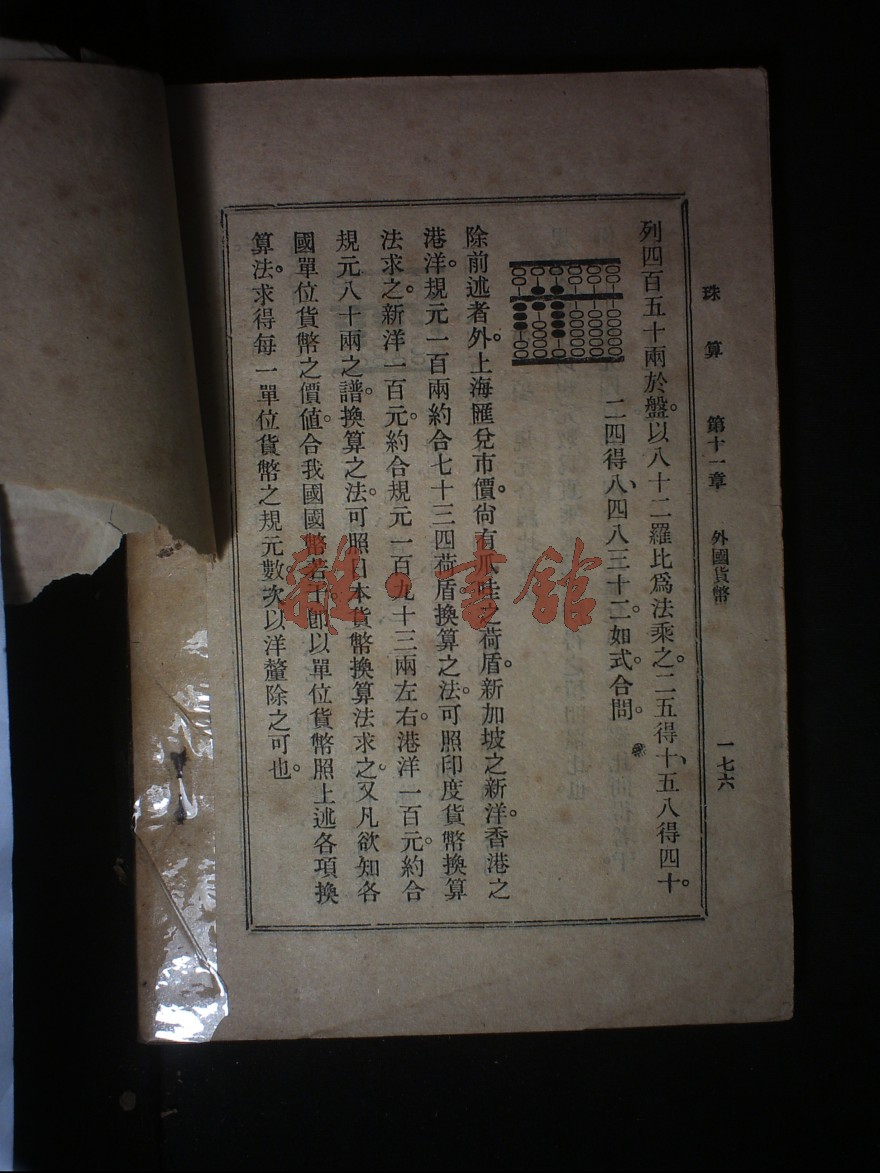 珠算 第十一章 外國貨幣 一七六
列四百五十兩於盤。以八十二羅比爲法乘之。二五得十、五八得四十。
二四得八、四八三十二。如式。合問。
除前述者外。上海匯兌市價。尙有爪哇之荷盾。新加坡之新洋。香港之
港洋。規元一百兩約合七十三四荷盾換算之法。可照印度貨幣換算
法求之。新洋一百元。約合規元一百九十三兩左右。港洋一百元。約合
規元八十兩之譜。換算之法。可照日本貨幣換算法求之。又凡欲知各
國單位貨幣之價値。合我國國幣若干。卽以單位貨幣照上述各項換
算法。求得每一單位貨幣之規元數。次以洋釐除之可也。
雜·書館